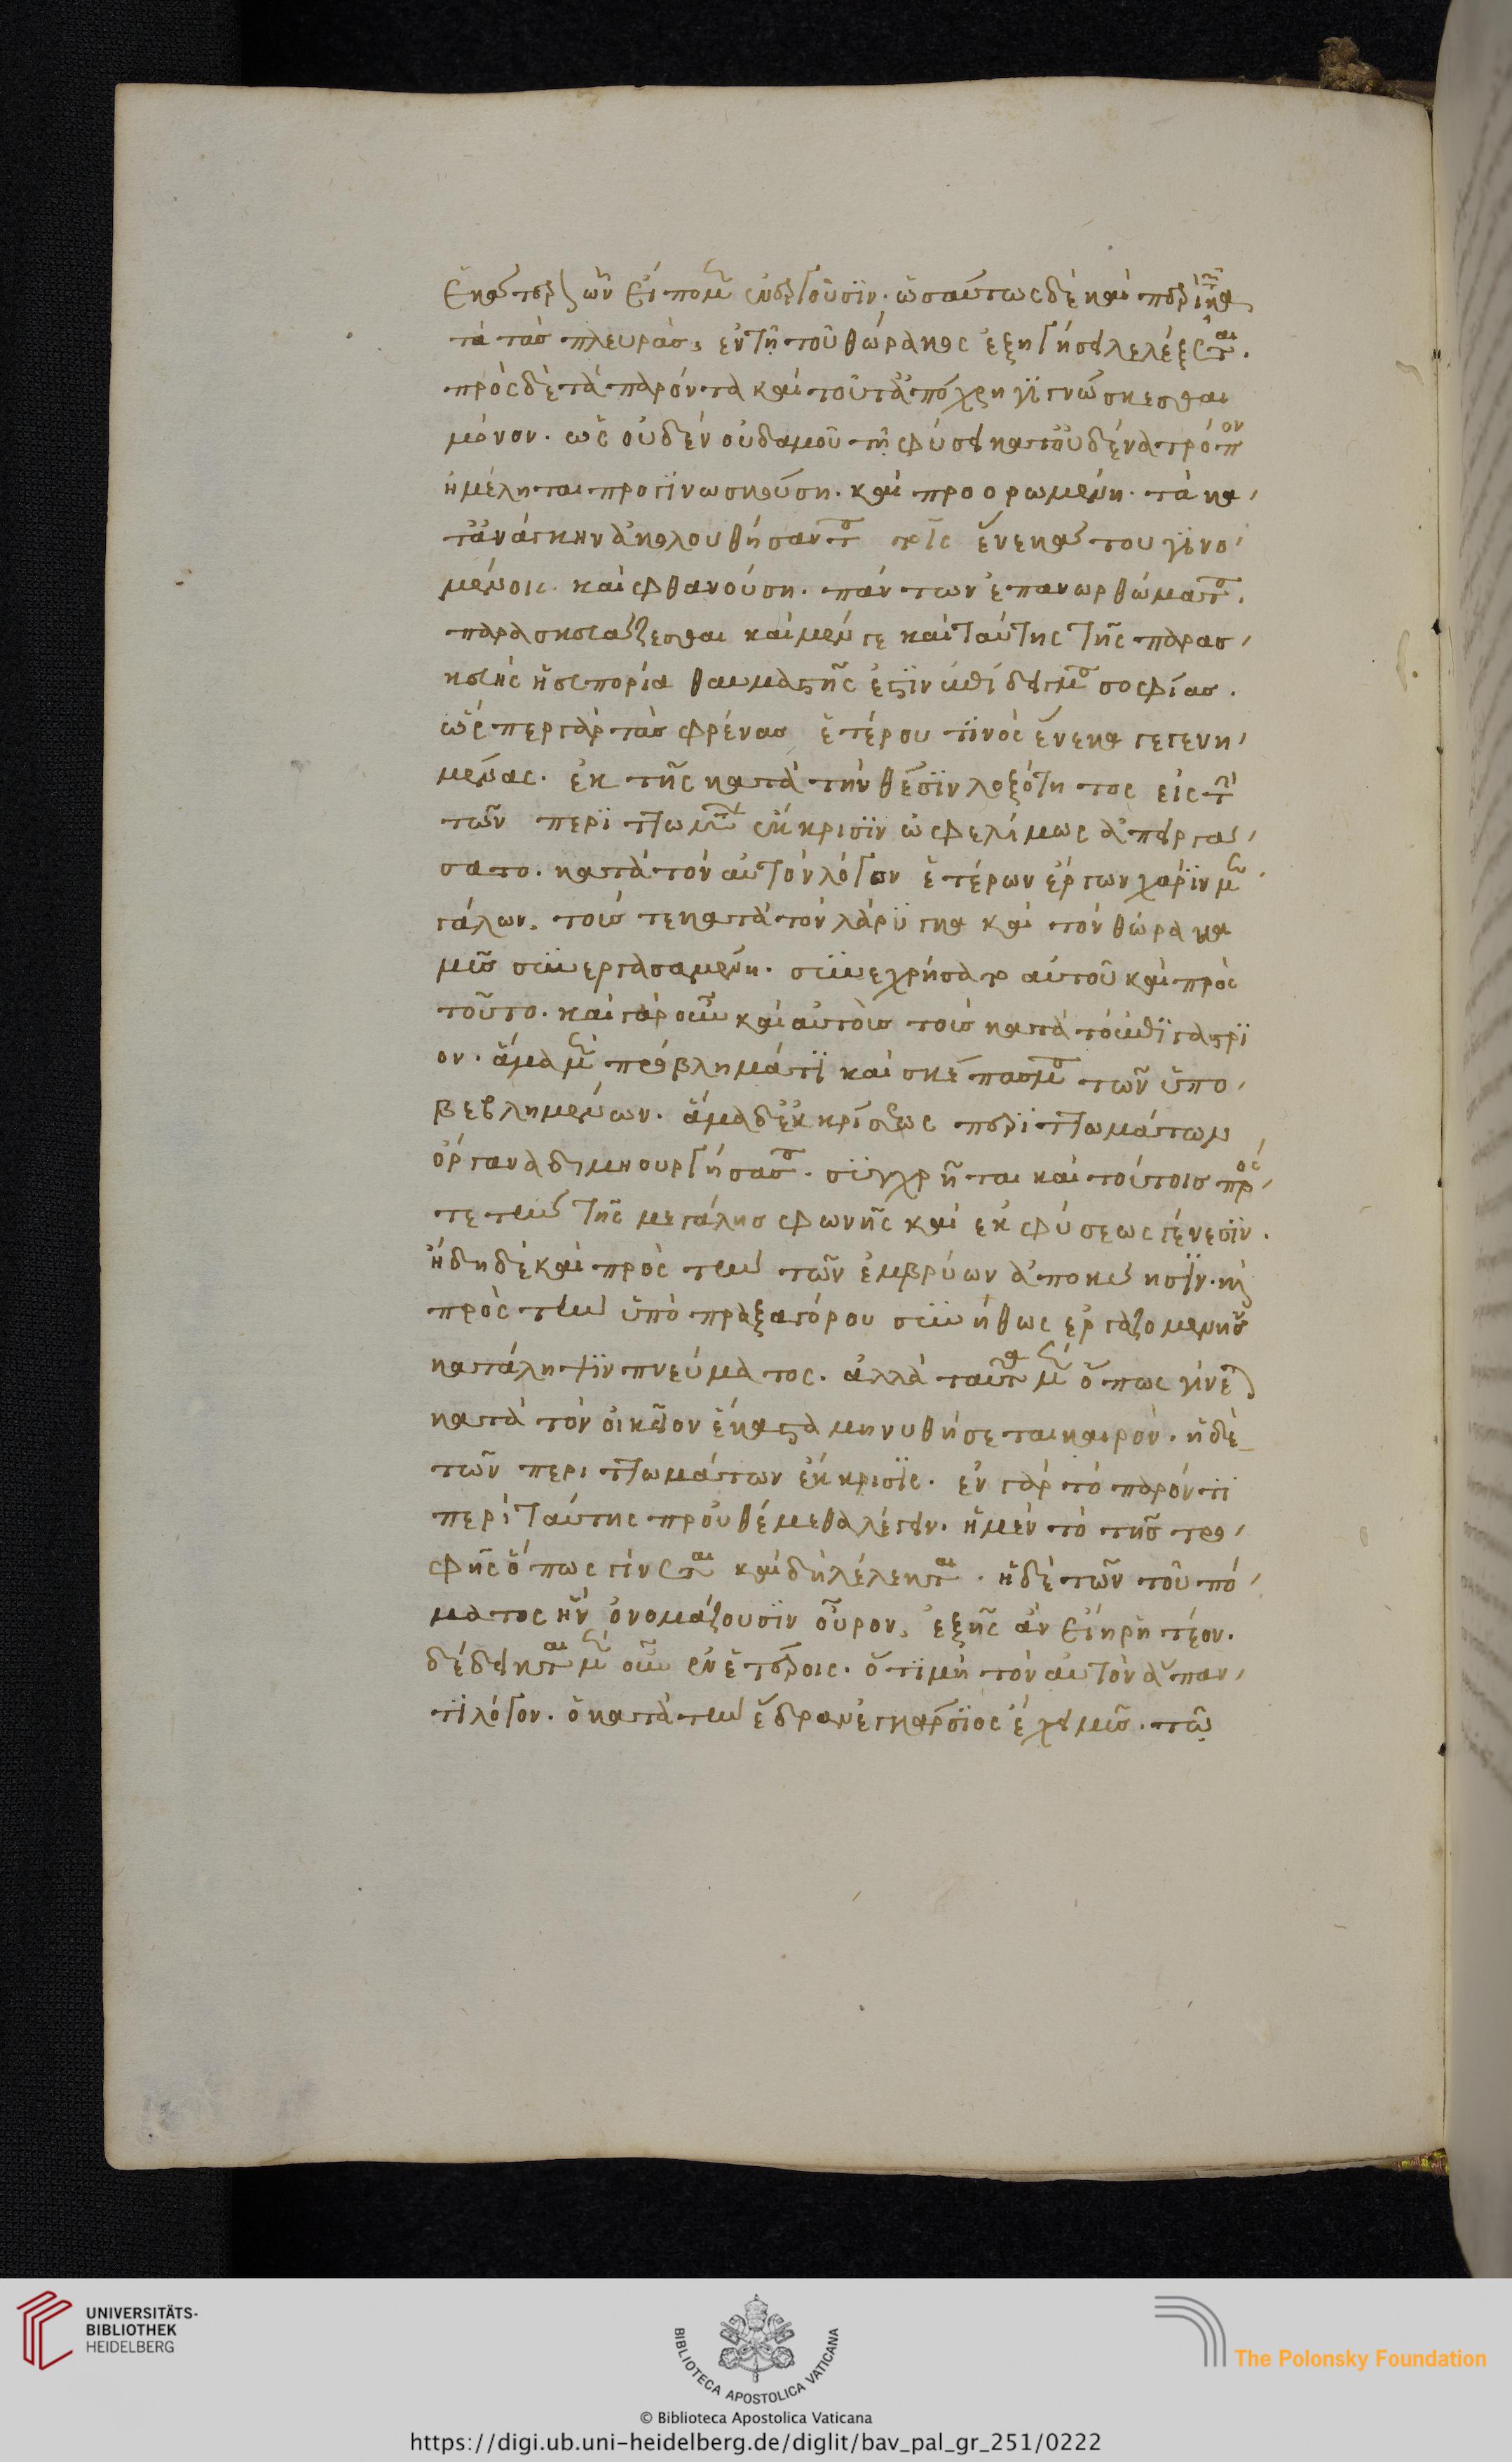 ἕνεκά τερ ζώων εἴπομεν ἐνεργοῦσϊν. ὡσαύτως δὲ καὶ περὶ τῶν κα
τὰ τὰς πλευράς, ἐν τῇ τοῦ θώρακος ἐξηγήσει λελέξεται.
πρὸς δὲ τὰ παρόντα καὶ τοῦτ' ἀπόχρη γϊγνώσκεσθαι
μόνον. ὡς οὐδὲν οὐδαμοῦ τῇ φύσει κατ' οὐδένα τρόπον
ἠμέληται προγϊνωσκούση. καὶ προορωμένη. τὰ κα
τ' ἀνάγκην ἀκολουθήσαντα τοῖς ἕνεκά του γϊνο
μένοις. καὶ φθανούση. πάντων ἐπανωρθώματα.
παρασκευάζεσθαι καὶ μέν γε καὶ ταύτης τῆς παρασ
κευῆς ἡ εὐπορία θαυμαστῆς ἐστϊν ἐπίδειγμα σοφίας.
ὥσπερ γὰρ τὰς φρένας ἑτέρου τϊνὸς ἕνεκα γεγενη
μένας. ἐκ τῆς κατὰ τὴν θέσϊν λοξότητος εἰς τὴν
τῶν περϊττωμάτων ἔκκρισϊν ὠφελίμως ἀπειργά
σατο. κατὰ τὸν αὐτὸν λόγον ἑτέρων ἔργων χάρϊν με
γάλων. τοῖς τε κατὰ τὸν λάρυγγα καὶ τὸν θώρακα
μυσὶ συνεργασαμένη. συνεχρήσατο αὐτοῦ καὶ πρὸς
τοῦτο. καὶ γὰρ οὖν καὶ αὐτοῖς τοῖς κατὰ τὸ ἐπϊγάστρϊ
ον. ἅμα μὲν προβλημάτϊ καὶ σκέπασμα τῶν ὑπο
βεβλημένων. ἅμα δ' ἐκκρίσεως περϊττωμάτων
ὄργανα δημιουργήσασα. συγχρῆται καὶ τούτοις πρός
τε τὴν τῆς μεγάλης φωνῆς καὶ ἐκφύσεως γένεσϊν.
ἤδη δὲ καὶ πρὸς τὴν τῶν ἐμβρύων ἀποκύησϊν. καὶ
πρὸς τὴν ὑπὸ πραξαγόρου συνήθως ἐργαζομένην
κατάληψϊν πνεύματος. ἀλλὰ ταῦτα μὲν ὅπως γίνεται
κατὰ τὸν οἰκεῖον ἕκαστα μηνυθήσεται καιρόν. ἡ δὲ
τῶν περιττωμάτων ἔκκρισϊς. ἐν γὰρ τὸ παρόντϊ
περὶ ταύτης προυθέμεθα λέγειν. ἡ μὲν τὸ τῆς τρο
φῆς ὅπως γίνεται καὶ δὴ λέλεκται. ἡ δὲ τῶν τοῦ πό
ματος ἣν ὀνομάζουσϊν οὖρον, ἑξῆς ἂν εἴη ῥητέον.
δέδεικται μὲν οὖν ἐν ἑτέροις. ὅτϊ μὴ τὸν αὐτὸν ἅπαν
τϊ λόγον. ὃ κατὰ τὴν ἕδραν ἐγκάρσϊος ἔχει μῦς. τῷ
UNIVERSITÄTS-
BIBLIOTHEK
HEIDELBERG
BIBLIOTECA APOSTOLICA VATICANA
The Polonsky Foundation
© Biblioteca Apostolica Vaticana
https://digi.ub.uni-heidelberg.de/diglit/bav_pal_gr_251/0222